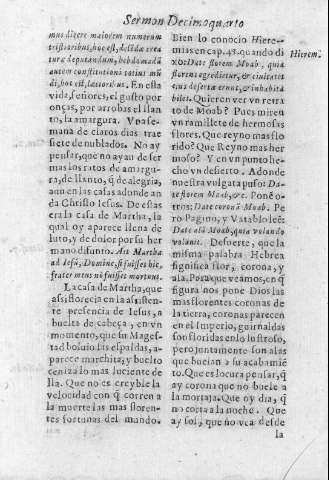 Sermon Decimoquarto
mus dicere maiorem numerum
tristioribus, hoc est, desidæ crea
turæ deputandum, hebdomadã
autem constitutioni totius mũ
di, hoc est, lætioribus. En esta
vida, señores, el gusto por
onças, por arrobas el llan-
to, la amargura. Vna se-
mana de claros dias trae
siete de nublados. No ay
pensar, que no ayan de ser
mas los ratos de amargu-
ra, de llanto, q̃ de alegria,
aun en las casas adonde an
da Christo Iesus. De estas
era la casa de Martha, la
qual oy aparece llena de
luto, y de dolor por su her
mano difunto. Ait Martha
ad Iesũ, Domine, si fuisses hîc,
frater meus nõ fuisset mortuus.
La casa de Martha, que
assi florecia en la assisten-
te presencia de Iesus, a
buelta de cabeça, en vn
momento, que su Mages-
tad boluio las espaldas, a-
parece marchita, y buelto
ceniza lo mas luciente de
lla. Que no es creyble la
velocidad con q̃ corren a
la muerte las mas floren-
tes fortunas del mundo.
Bien lo conocio Hiere-
mias en cap. 48. quando di
xo: Date florem Moab, quia
florens egredietur, & ciuitates
eius desertæ erunt, & inhabita
biles. Quieren ver vn retra
to de Moab? Pues miren
vn ramillete de hermosas
flores. Que reyno mas flo
rido? Que Reyno mas her
moso? Y en vn punto he-
cho vn desierto. Adonde
nuestra vulgata puso: Da-
te florem Moab, &c. Pone o-
tros: Date coronã Moab. Pe
ro Pagino, y Vatablo leẽ:
Date alã Moab, quia volando
volauit. De suerte, que la
misma palabra Hebrea
significa flor, corona, y
ala. Para que veamos, en q̃
figura nos pone Dios las
mas florentes coronas de
la tierra, coronas parecen
en el Imperio, guirnaldas
son floridas en lo lustroso,
pero juntamente son alas
que buelan a su acabamiẽ
to. Que es locura pensar, q̃
ay corona que no buele a
la mortaja. Que oy dia, q̃
no corta a la noche. Que
ay sol, que no vea desde
la
Hierem.